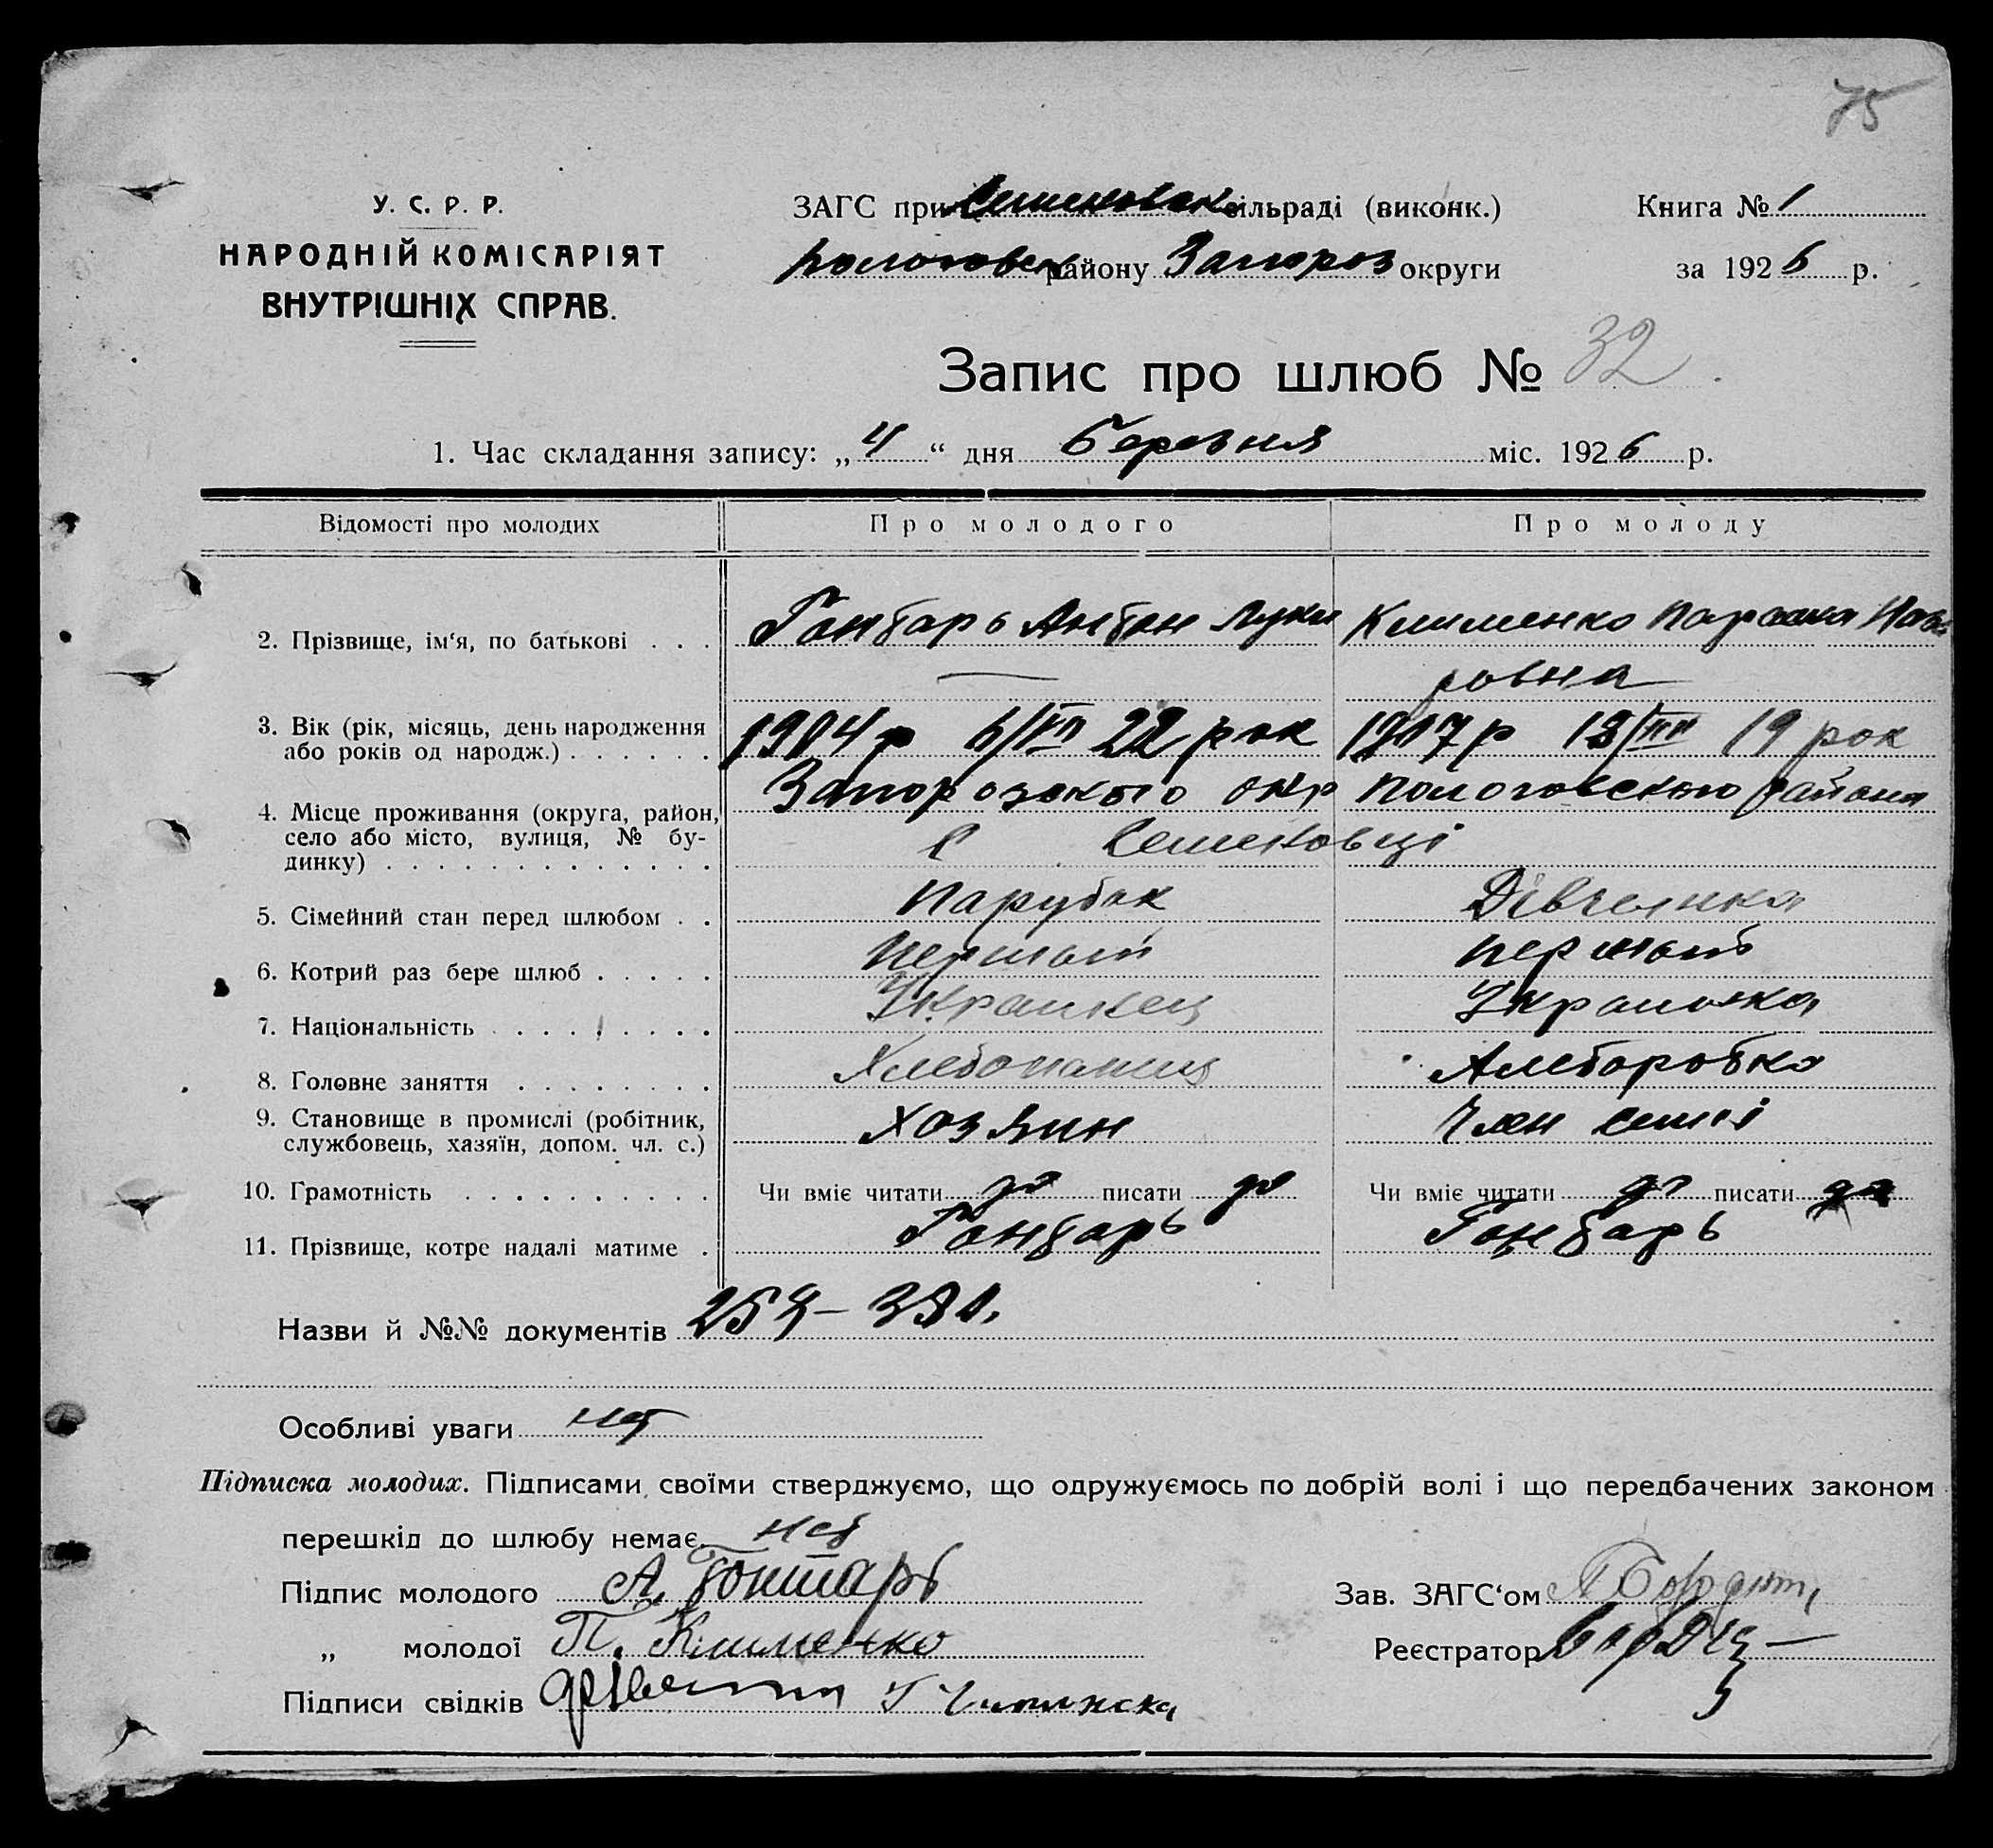 75
У. С. Р. Р.
НАРОДНІЙ КОМІСАРІЯТ
ВНУТРІШНІХ СПРАВ.
ЗАГС при Семеновск сільраді (виконк.)
Пологовск району Запороз округи
Книга № 1
за 1926 р.
Запис про шлюб № 32
1. Час складання запису: „4“ дня Березня міс. 1926 р.
Відомості про молодих
Про молодого
Про молоду
2. Прізвище, ім‘я, по батькові . . .
Гонтарь Антон Луки
Клименко Параска Наза
ровна
3. Вік (рік, місяць, день народження
або років од народж.) . . . . . .
1904 р 6/VII 22 рок
1907 р 13/III 19 рок
4. Місце проживання (округа, район,
село або місто, вулиця, № бу-
динку) . . . . . . . . . . . . .
Запорозького окр Пологовского района
С Семеновці
5. Сімейний стан перед шлюбом . .
Парубок
Дівчинка
6. Котрий раз бере шлюб . . . . .
Первый
первый
7. Національність . . . . . . . .
Украинец
Украинка
8. Головне заняття . . . . . . . .
Хлебопашец
Хлеборобка
9. Становище в промислі (робітник,
службовець, хазяїн, допом. чл. с.)
хозяин
Член семї
10. Грамотність . . . . . . . . . .
Чи вміє читати да писати да
Чи вміє читати да писати да
11. Прізвище, котре надалі матиме .
Гонтарь
Гонтарь
Назви й №№ документів
Особливі уваги нет
Підписка молодих. Підписами своїми стверджуємо, що одружуємось по добрій волі і що передбачених законом
перешкід до шлюбу немає. нет
Підпис молодого А. Гонтарь
„ молодої П. Клименко
Підписи свідків
Зав. ЗАГС‘ом
Реєстратор